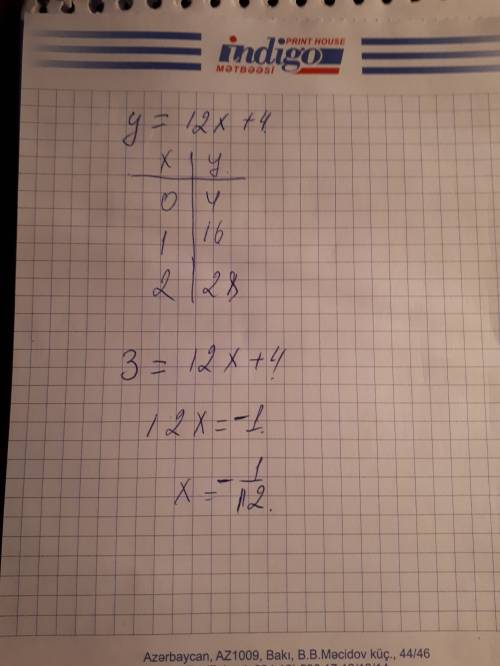 PRINT HOUSE
indigo
MƏTBƏƏSİ
y = 12x + 4
x | y
0 | 4
1 | 16
2 | 28
3 = 12x + 4
12x = -1
x = - 1/12.
Azərbaycan, AZ1009, Bakı, B.B.Məcidov küç., 44/46